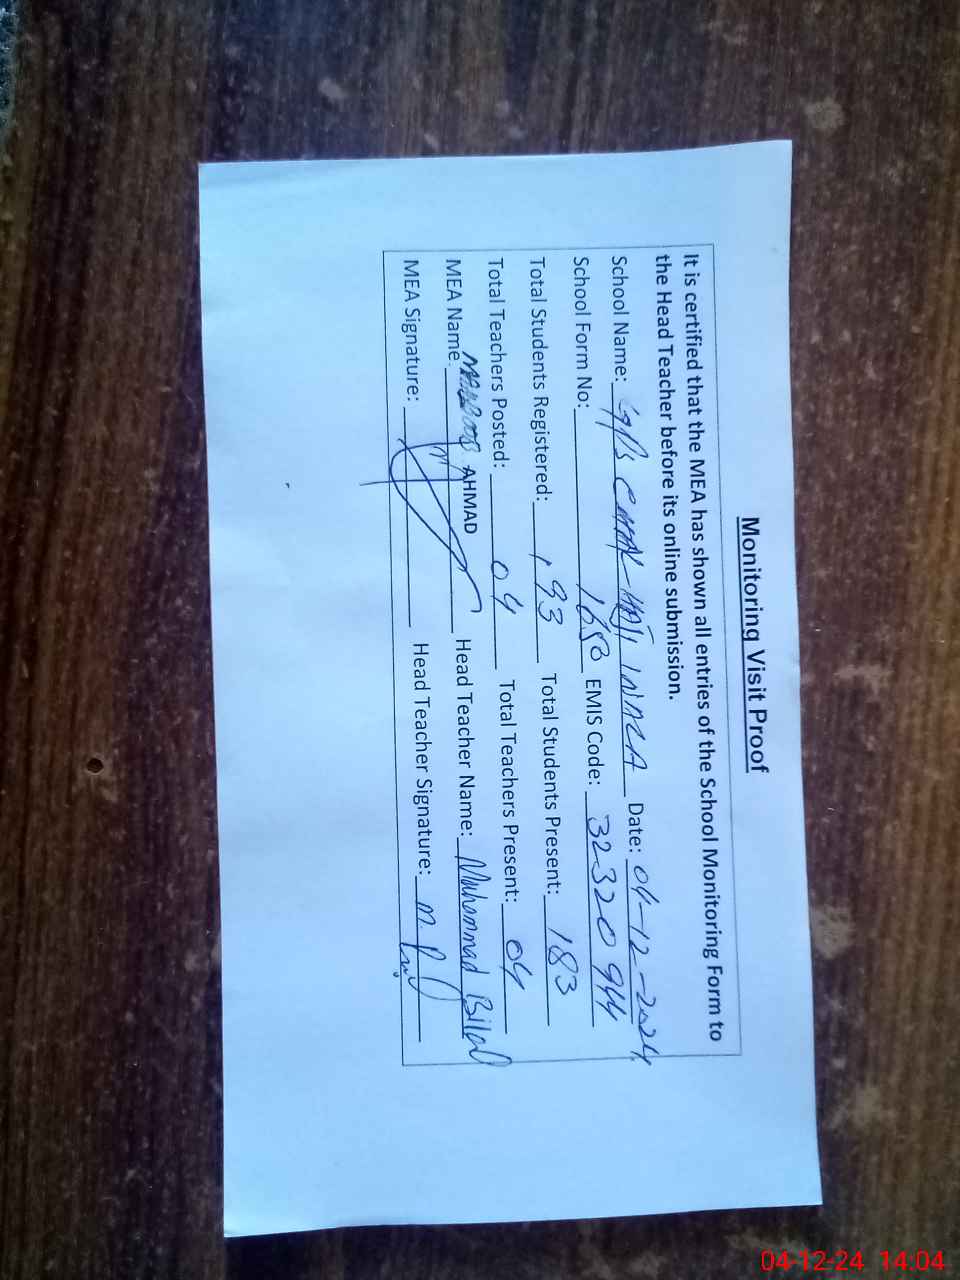 Monitoring Visit Proof
It is certified that the MEA has shown all entries of the School Monitoring Form to
the Head Teacher before its online submission.
School Name: G/PS CHAK HAJI Date: 04-12-2024
School Form No: 1650 EMIS Code: 32320944
Total Students Registered: 193 Total Students Present: 183
Total Teachers Posted: 04 Total Teachers Present: 04
MEA Name: AHMAD Head Teacher Name: Muhammad Bilal
MEA Signature: Head Teacher Signature:
04-12-24 14:04